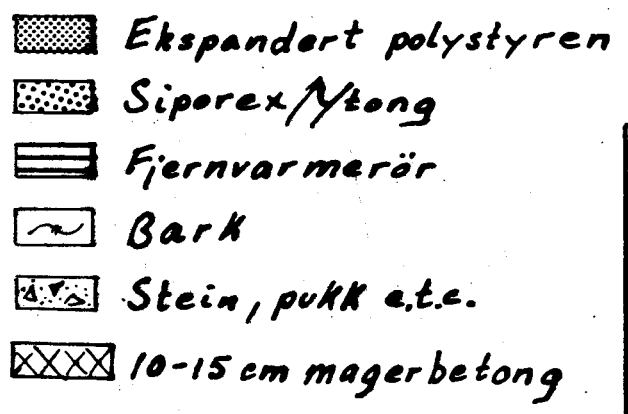 Ekspandert polystyren
Siporex/Ytong
Fjernvarmerör
Bark
Stein, pukk e.t.c.
10-15 cm magerbetong